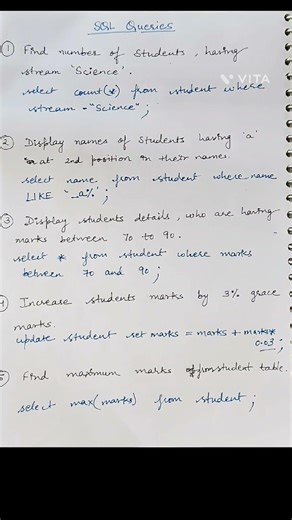 SQL Queries
① Find number of Students, having
stream 'Science'.
select count(*) from student where
stream = "Science";
VITA
② Display names of Students having 'a'
at 2nd position in their names.
select name from student where name
LIKE '_a%';
③ Display students details, who are having
marks between 70 to 90.
select * from student where marks
between 70 and 90;
4 Increase students marks by 3% grace
marks.
update student set marks = marks + marks*
0.03;
5 Find maximum marks from student table.
select max(marks) from student;